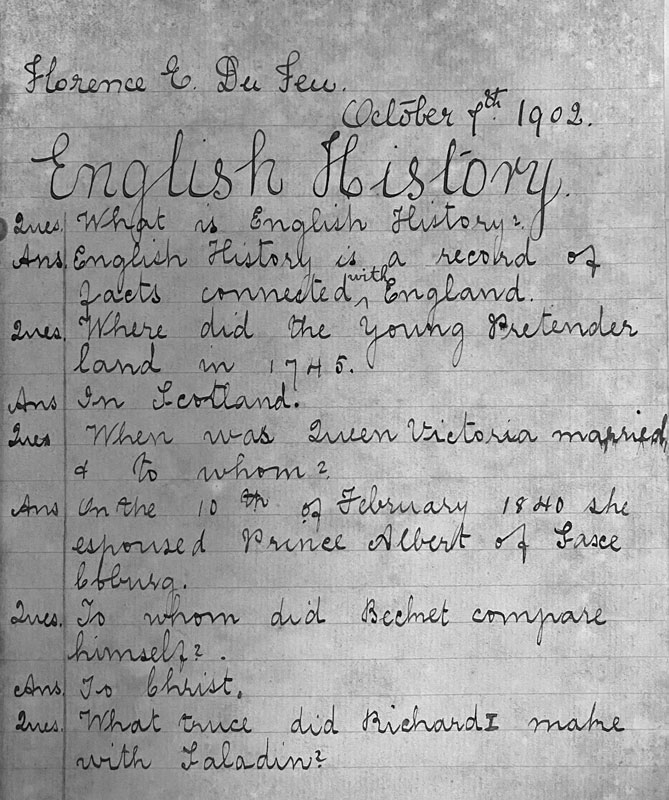 Florence E. Du Feu.
October 7th 1902.
English History.
Ques. What is English History?
Ans. English History is a record of
facts connected with England.
Ques. Where did the Young Pretender
land in 1745.
Ans In Scotland.
Ques When was Queen Victoria married
& to whom?
Ans On the 10th of February 1840 she
espoused Prince Albert of Saxe
Coburg.
Ques. To whom did Becket compare
himself?.
Ans. To Christ.
Ques. What truce did Richard I make
with Saladin?